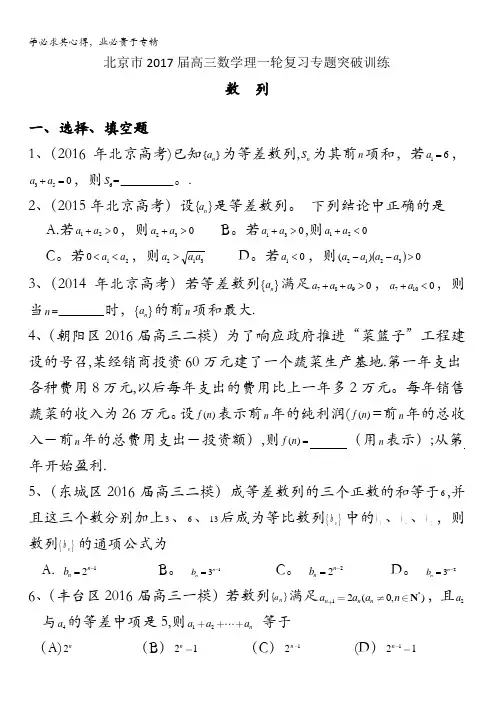 学必求其心得，业必贵于专精
北京市2017届高三数学理一轮复习专题突破训练
数 列
一、选择、填空题
1、（2016年北京高考）已知{aₙ}为等差数列,Sₙ为其前n项和，若a₁=6，
a₃+a₅=0，则S₆=________。.
2、（2015年北京高考）设{aₙ}是等差数列。 下列结论中正确的是
A.若a₁+a₂>0，则a₂+a₃>0 B。若a₁+a₃>0,则a₁+a₂<0
C。若0<a₁<a₂，则a₂>√a₁a₃ D。若a₁<0，则(a₂-a₁)(a₂-a₃)>0
3、（2014年北京高考）若等差数列{aₙ}满足a₇+a₈+a₉>0，a₇+a₁₀<0，则
当n=________时，{aₙ}的前n项和最大.
4、（朝阳区2016届高三二模）为了响应政府推进“菜篮子”工程建
设的号召,某经销商投资60万元建了一个蔬菜生产基地.第一年支出
各种费用8万元,以后每年支出的费用比上一年多2万元。每年销售
蔬菜的收入为26万元。设f(n)表示前n年的纯利润(f(n)=前n年的总收
入－前n年的总费用支出－投资额）,则f(n)=______（用n表示）;从第
年开始盈利.
5、（东城区2016届高三二模）成等差数列的三个正数的和等于6,并
且这三个数分别加上3、6、13后成为等比数列{bₙ}中的、、，则
数列{bₙ}的通项公式为
A. bₙ=2ⁿ⁻¹ B。 bₙ=3ⁿ⁻¹ C。 bₙ=2ⁿ⁻² D。 bₙ=3ⁿ⁻²
6、（丰台区2016届高三一模）若数列{aₙ}满足aₙ₊₁=2aₙ(aₙ≠0,n∈N*)，且a₂
与a₄的等差中项是5,则a₁+a₂+⋯+aₙ 等于
（A)2ⁿ （B）2ⁿ-1 （C）2ⁿ⁻¹ (D）2ⁿ⁻¹-1